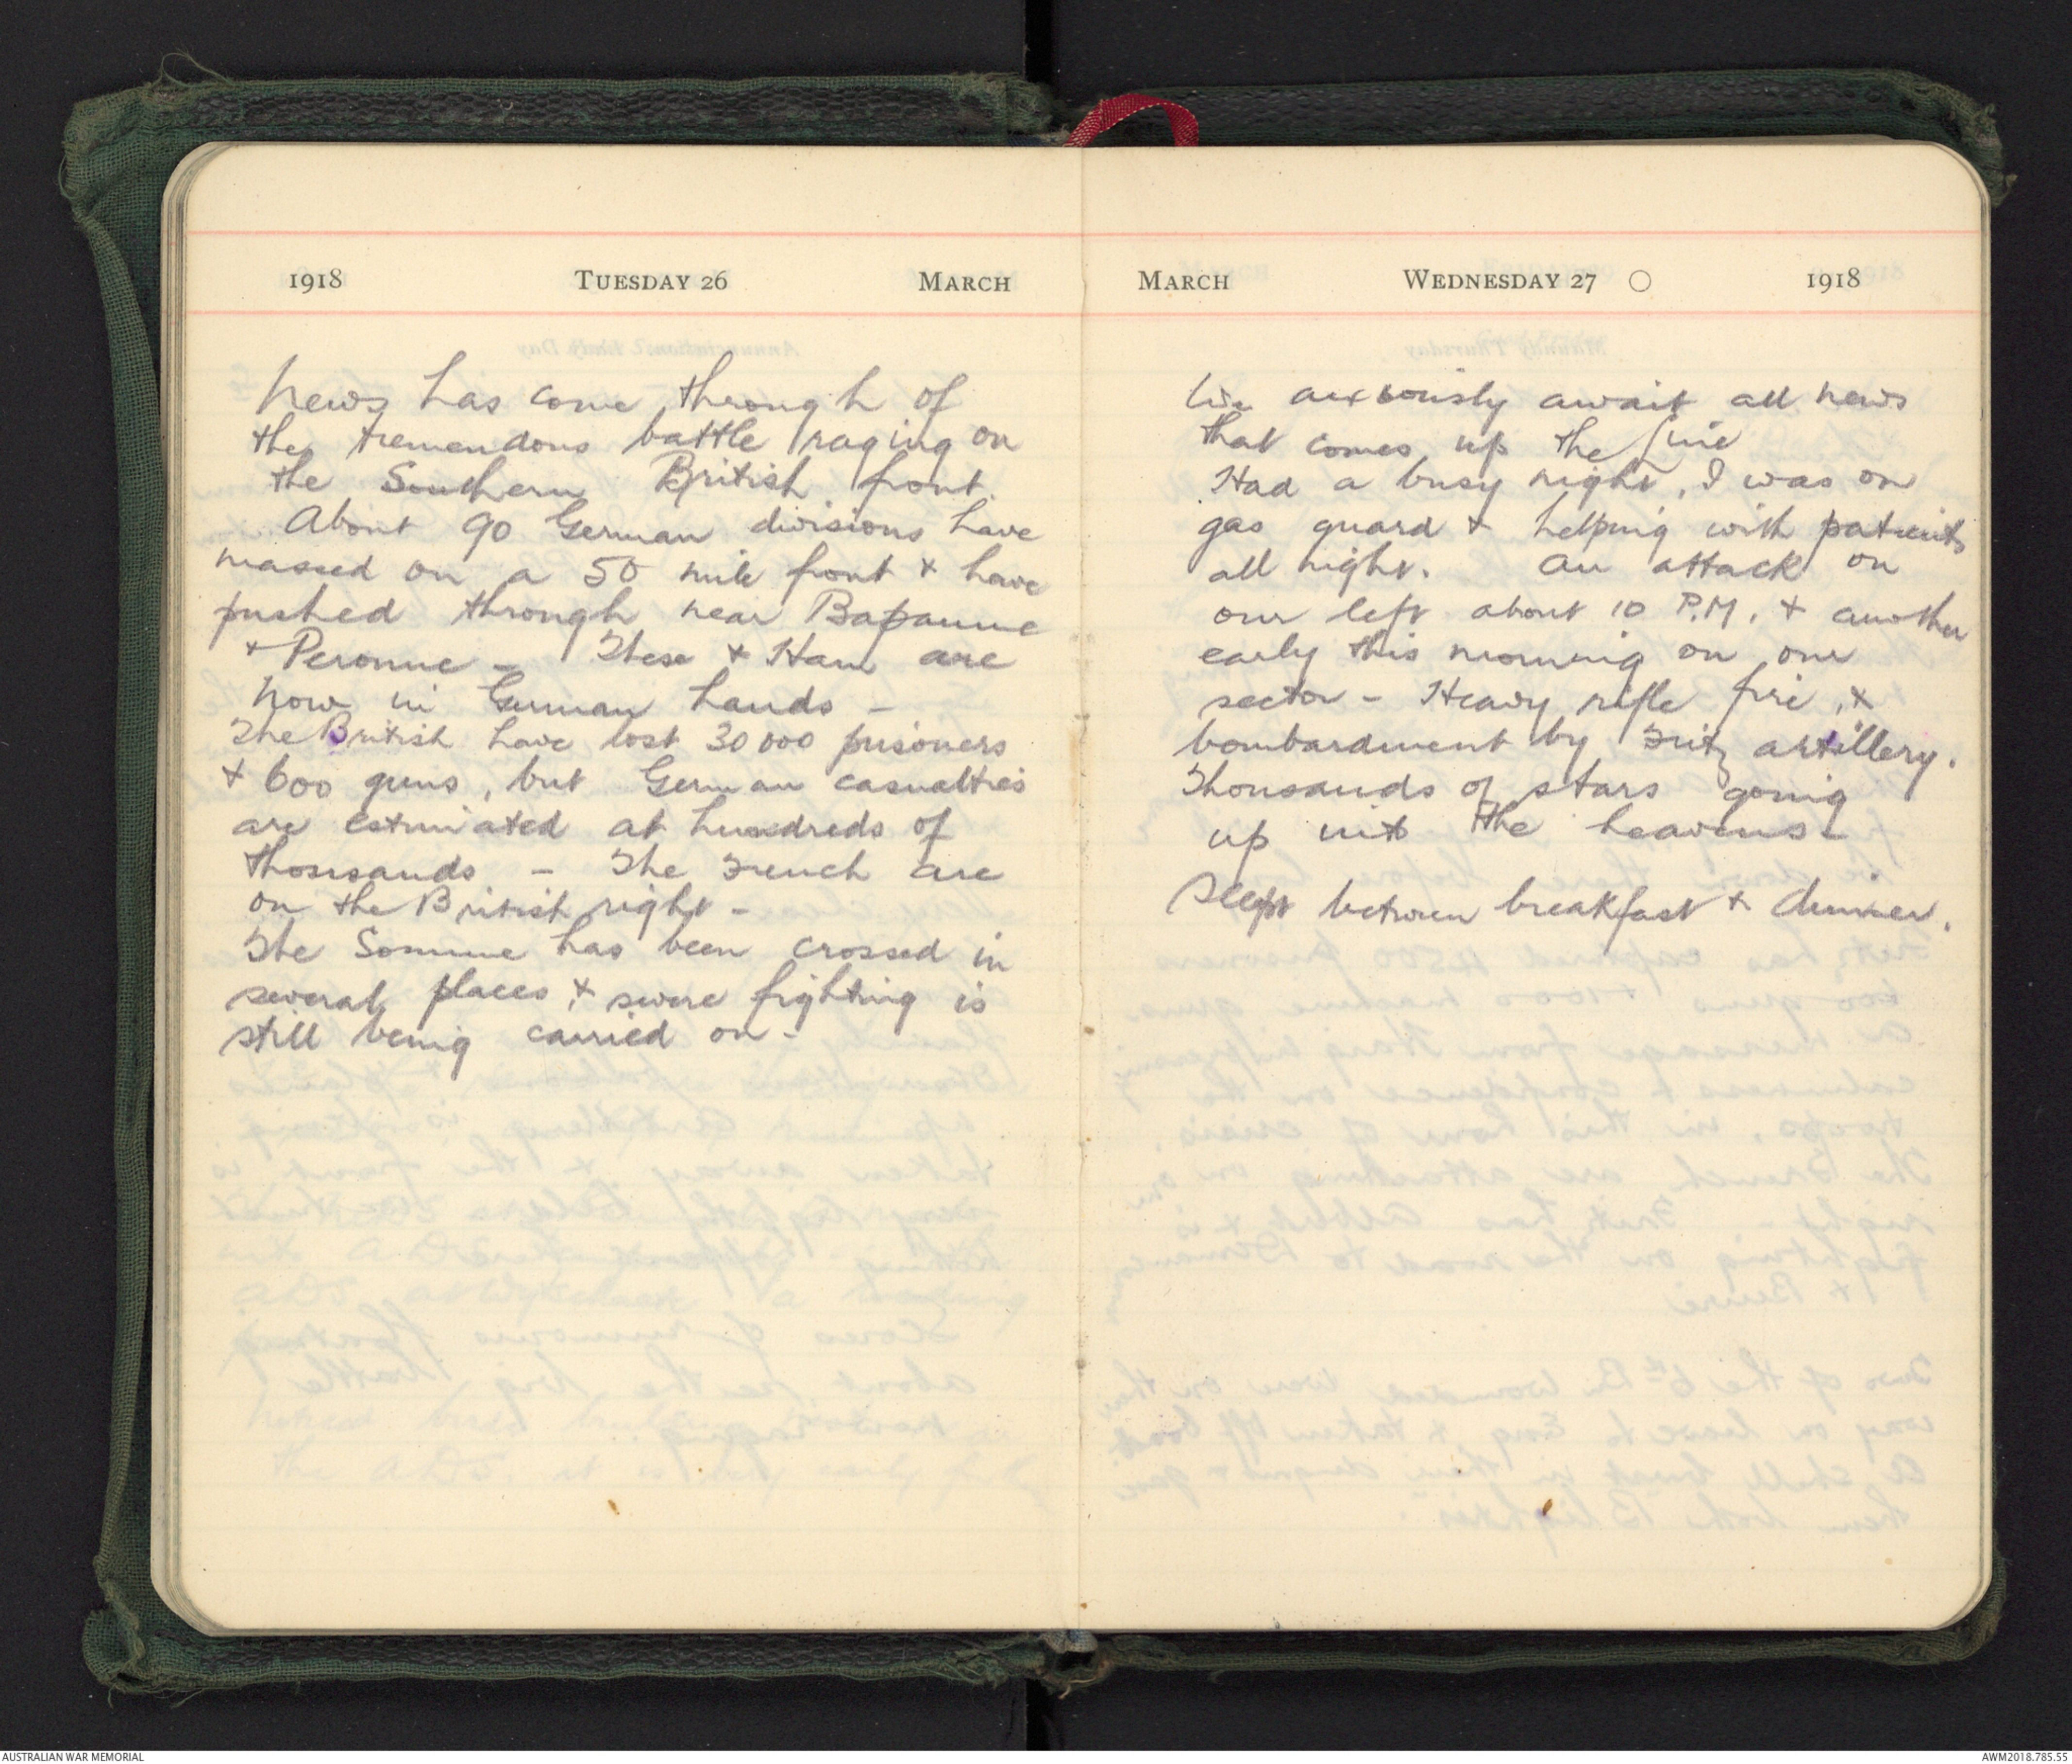 1918 TUESDAY 26 MARCH
News has come through of
the tremendous battle raging on
the Southern British front.
About 90 German divisions have
massed on a 50 mile front & have
pushed through near Bapaume
& Peronne - These & Ham are
now in German hands -
The British have lost 30 000 prisoners
& 600 guns, but German casualties
are estimated at hundreds of
thousands - The French are
on the British right -
The Somme has been crossed in
several places, & severe fighting is
still being carried on -
MARCH WEDNESDAY 27 1918
We anxiously await all news
that comes up the line
Had a busy night, I was on
gas guard & helping with patients
all night. An attack on
our left about 10 P.M. & another
early this morning on our
sector - Heavy rifle fire, &
bombardment by Fritz artillery.
Thousands of stars going
up into the heavens.
Slept between breakfast & dinner.
AUSTRALIAN WAR MEMORIAL
AWM2018.785.55